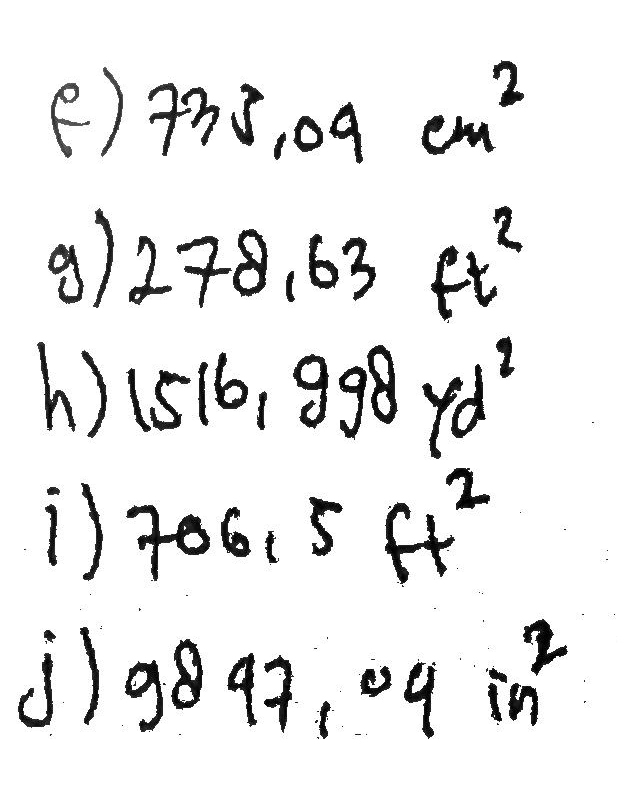 f) 735,04 cm²
g) 278,63 ft²
h) 1516,998 yd²
i) 706,5 ft²
j) 9847,04 in²